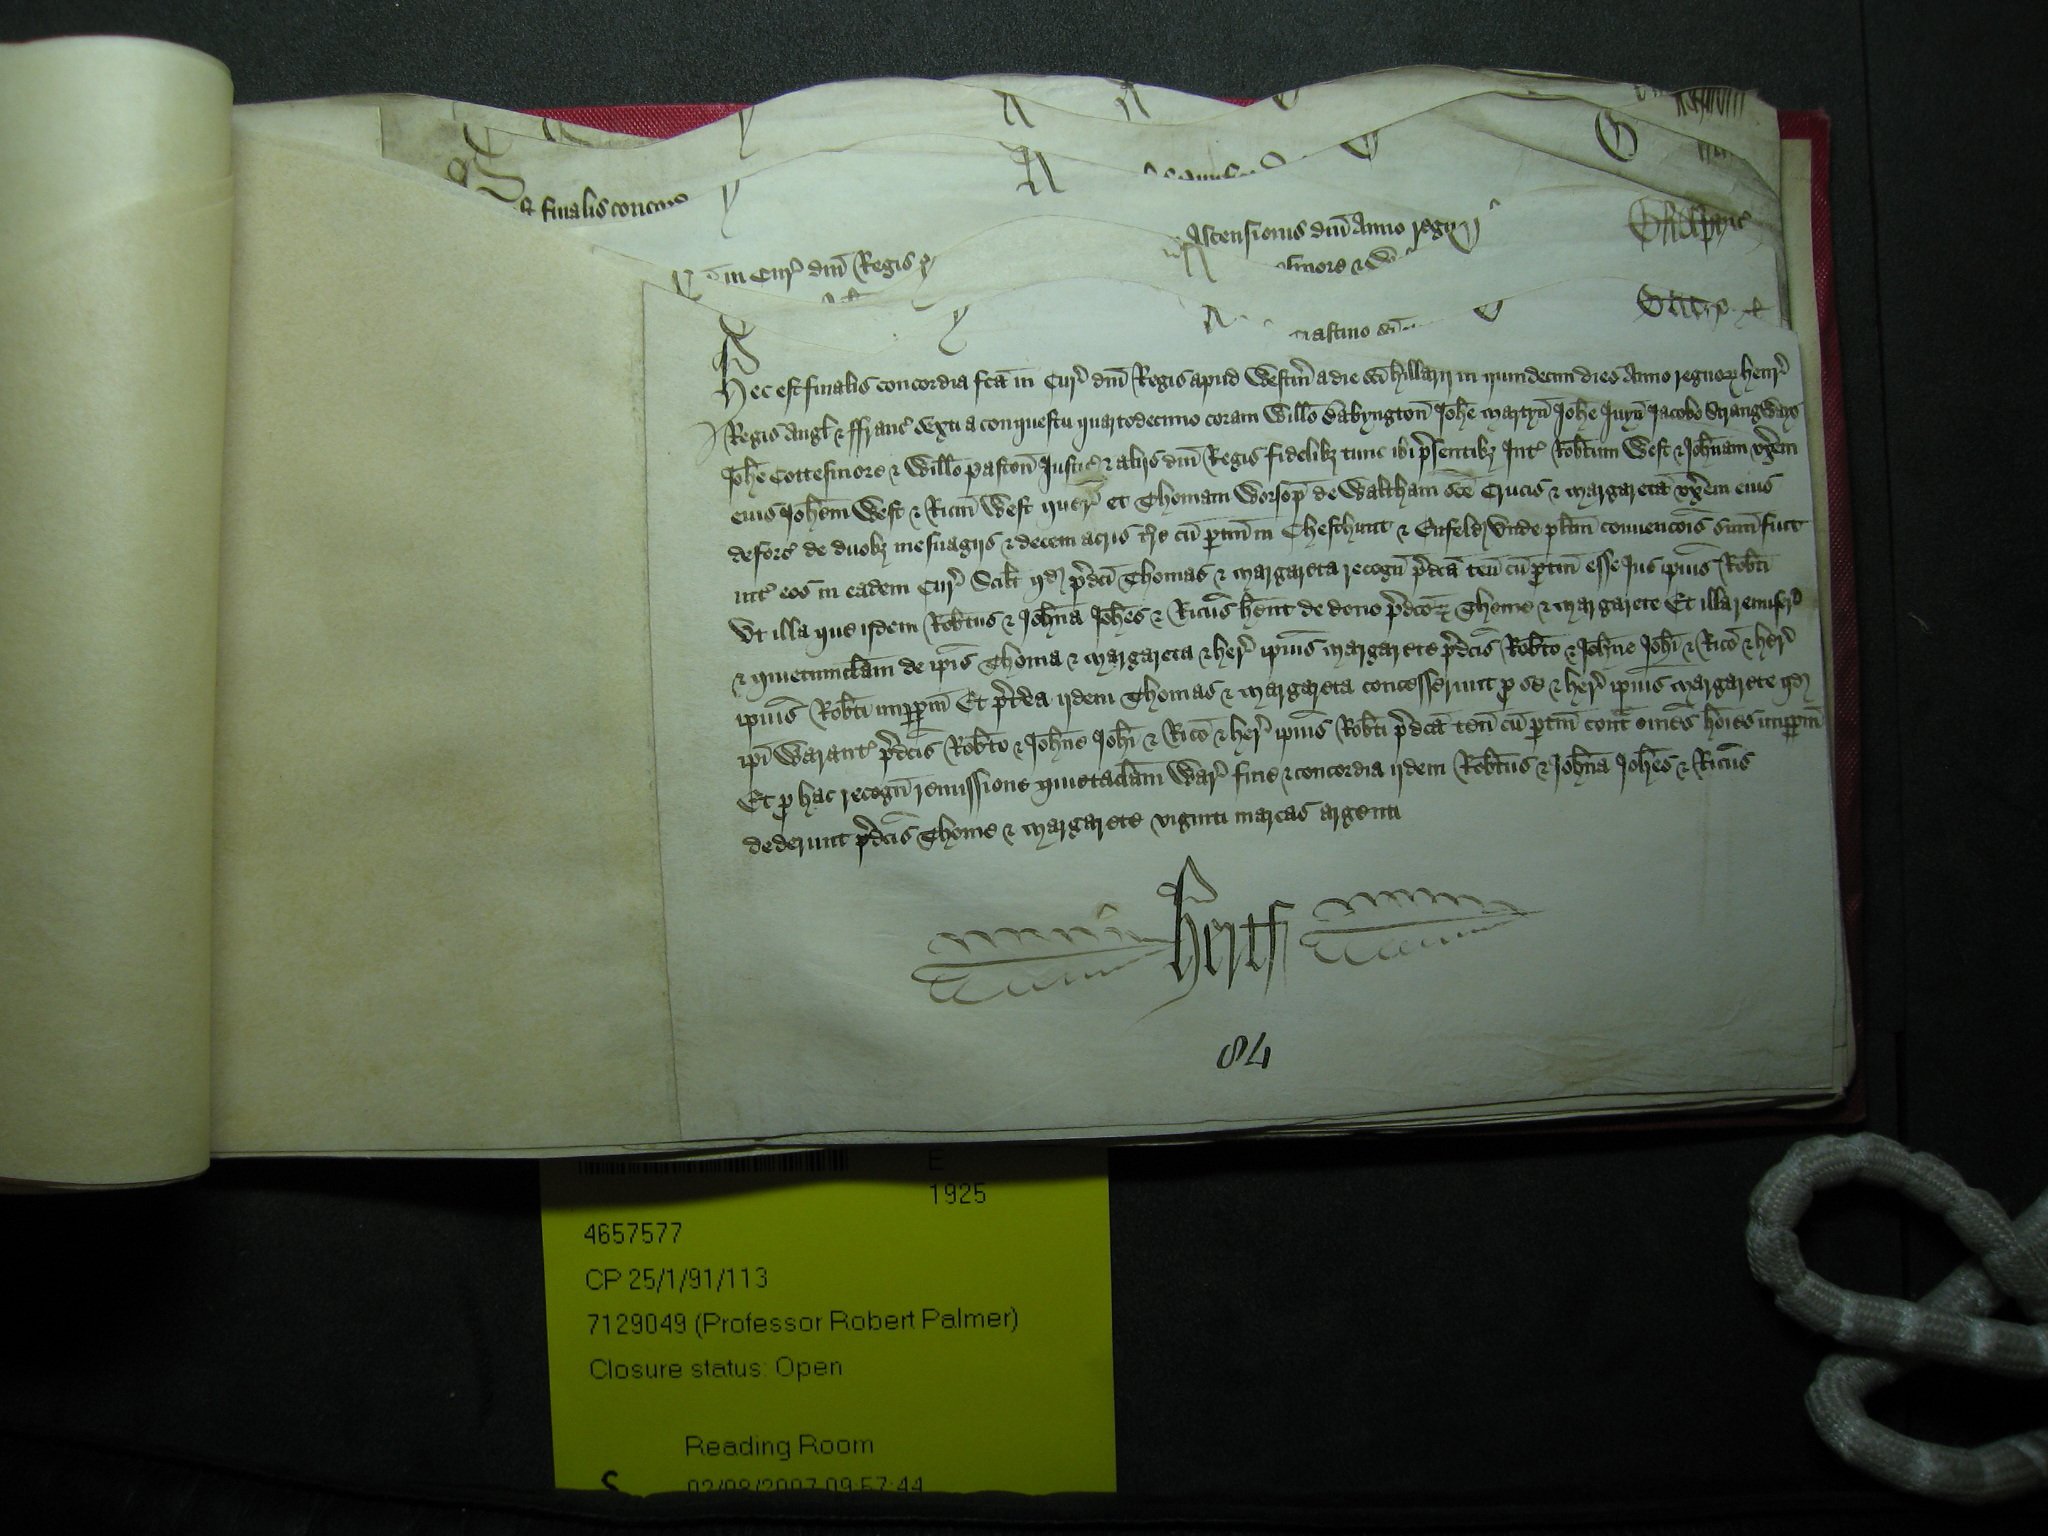 & finalis concor
in Cur̃ dñi Regis
Ascensionis dñi Anno regn
olmore & W
crastino
Hec est finalis concordia fc̃a in Cur̃ dñi Regis apud Westm̃ a die sc̃i hillarij in quindecim dies Anno regnoꝝ henr̃
Regis Angl̃ & ffranc̃ Sexti a conquestu quartodecimo coram Willo Babyngton Joh̃e Martyn Joh̃e Juyn Jacobo Strangways
Joh̃e Cottesmore & Willo Paston Justic̃ & alijs dñi Regis fidelibȝ tunc ibi p̃sentibȝ Int̃ Rob̃tum West & Joh̃nam vx̃em
eius Joh̃em West & Ric̃m West quer̃ et Thomam Worsop de Waltham sc̃e Crucis & Margaretã vx̃em eius
deforc̃ de duobȝ mesuagijs & decem acris t̃re cũ ptiñ in Chesthunt & Enfeld Vnde pl̃itm convenc̃ois sum̃ fuit
int̃ eos in eadem Cur̃ Scil̃t qd̃ p̃dc̃i Thomas & Margareta recogñ p̃dc̃a teñ cũ ptiñ esse Jus ip̃ius Rob̃ti
Vt illa que ijdem Rob̃tus & Joh̃na Joh̃es & Ric̃us h̃ent de dono p̃dc̃oꝝ Thome & Margarete Et illa remiser̃
& quietumclam̃ de ip̃is Thoma & Margareta & her̃ ip̃ius Margarete p̃dc̃is Rob̃to & Joh̃ne Joh̃i & Ric̃o & her̃
ip̃ius Rob̃ti imppm̃ Et p̃terea ijdem Thomas & Margareta concesserunt p se & her̃ ip̃ius Margarete qd̃
ip̃i Warant̃ p̃dc̃is Rob̃to & Joh̃ne Joh̃i & Ric̃o & her̃ ip̃ius Rob̃ti p̃dc̃a teñ cũ ptiñ cont̃ om̃es h̃oies imppm̃
Et p hac recogñ remissione quietaclam̃ War̃ fine & concordia ijdem Rob̃tus & Joh̃na Joh̃es & Ric̃us
dederunt p̃dc̃is Thome & Margarete viginti marcas argenti
Hertf
84
E
1925
4657577
CP 25/1/91/113
7129049 (Professor Robert Palmer)
Closure status: Open
Reading Room
S 02/08/2007 09:57:44